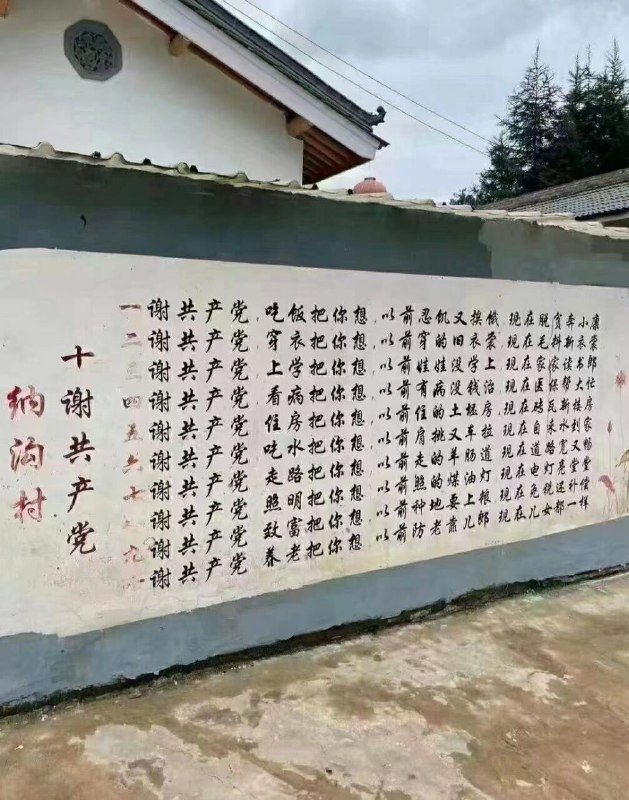 纳沟村
十谢共产党
一谢共产党，吃饭把你想，以前忍饥又挨饿，现在脱贫奔小康
二谢共产党，穿衣把你想，以前穿的旧衣裳，现在毛料新衣裳
三谢共产党，上学把你想，以前娃娃没学上，现在家家读书郎
四谢共产党，看病把你想，以前有病没钱治，现在医保帮大忙
五谢共产党，住房把你想，以前住的土坯房，现在砖瓦新楼房
六谢共产党，吃水把你想，以前肩挑又车拉，现在自来水到家
七谢共产党，走路把你想，以前走的羊肠道，现在道路宽又畅
谢共产党，照明把你想，以前照的煤油灯，现在电灯亮堂堂
九谢共产党，致富把你想，以前种地要上粮，现在免税还补偿
十谢共产党，养老把你想，以前防老靠儿郎，现在儿女都一样